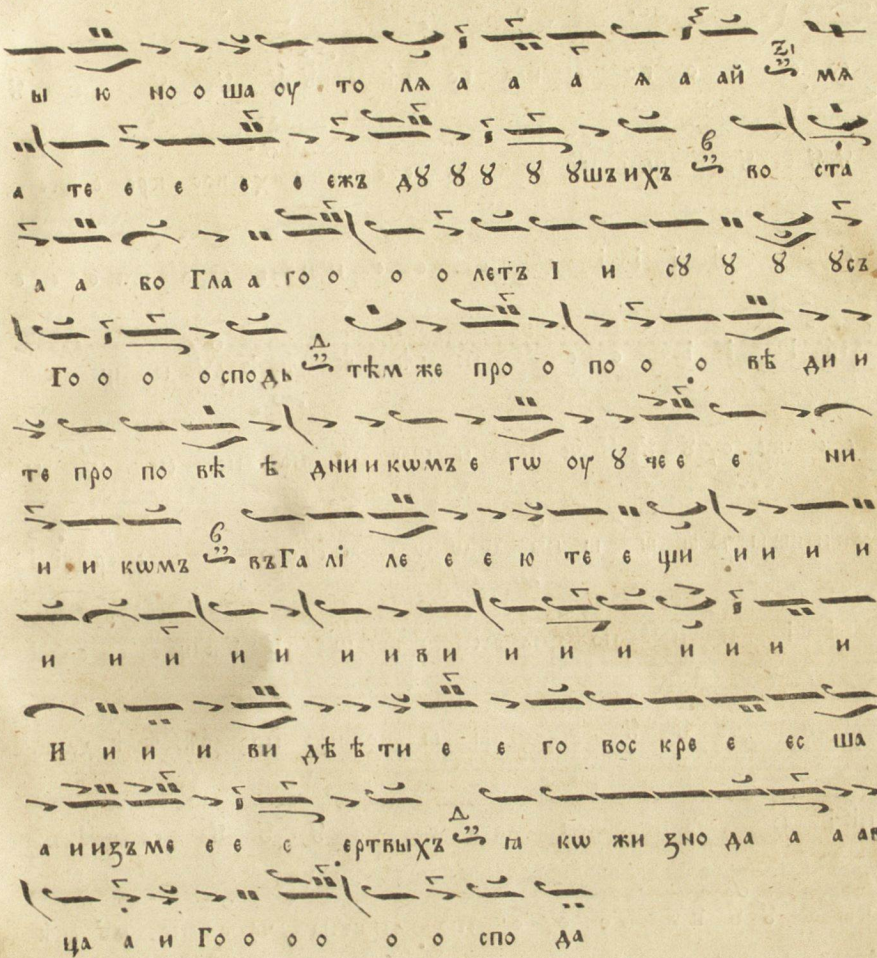 ы ю но о ша оу то лѧ а а а ѧ а ай мѧ
а те е е е е ежъ дꙋ ꙋ ꙋ ꙋ ꙋшъ ихъ во ста
а а во Гла а го о о о летъ І и сꙋ ꙋ ꙋ ꙋсъ
Го о о о сподь тѣм же про о по о о вѣ ди и
те про по вѣ ѣ дни и кѡмъ е гѡ оу ꙋ че е е ни
и и кѡмъ въ Га лі ле е е ю те е щи и и и и
и и и и и и и ви и и и и и и и
И и и и ви дѣ ѣ ти е е го вос кре е ес ша
а и изъ ме е е с ертвыхъ ꙗ кѡ жи зно да а а ав
ца а и Го о о о о о спо да